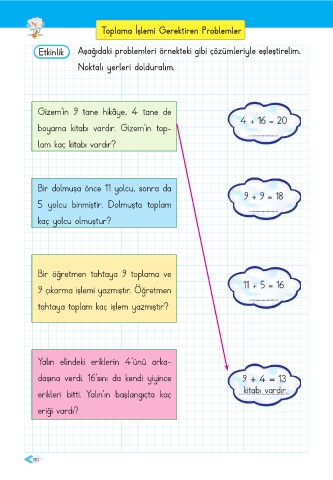 Toplama İşlemi Gerektiren Problemler
Etkinlik
Aşağıdaki problemleri örnekteki gibi çözümleriyle eşleştirelim.
Noktalı yerleri dolduralım.
Gizem'in 9 tane hikâye, 4 tane de
boyama kitabı vardır. Gizem'in top-
lam kaç kitabı vardır?
4 + 16 = 20
Bir dolmuşa önce 11 yolcu, sonra da
5 yolcu binmiştir. Dolmuşta toplam
kaç yolcu olmuştur?
9 + 9 = 18
Bir öğretmen tahtaya 9 toplama ve
9 çıkarma işlemi yazmıştır. Öğretmen
tahtaya toplam kaç işlem yazmıştır?
11 + 5 = 16
Yalın elindeki eriklerin 4'ünü arka-
daşına verdi. 16'sını da kendi yiyince
erikleri bitti. Yalın'ın başlangıçta kaç
eriği vardı?
9 + 4 = 13
kitabı vardır.